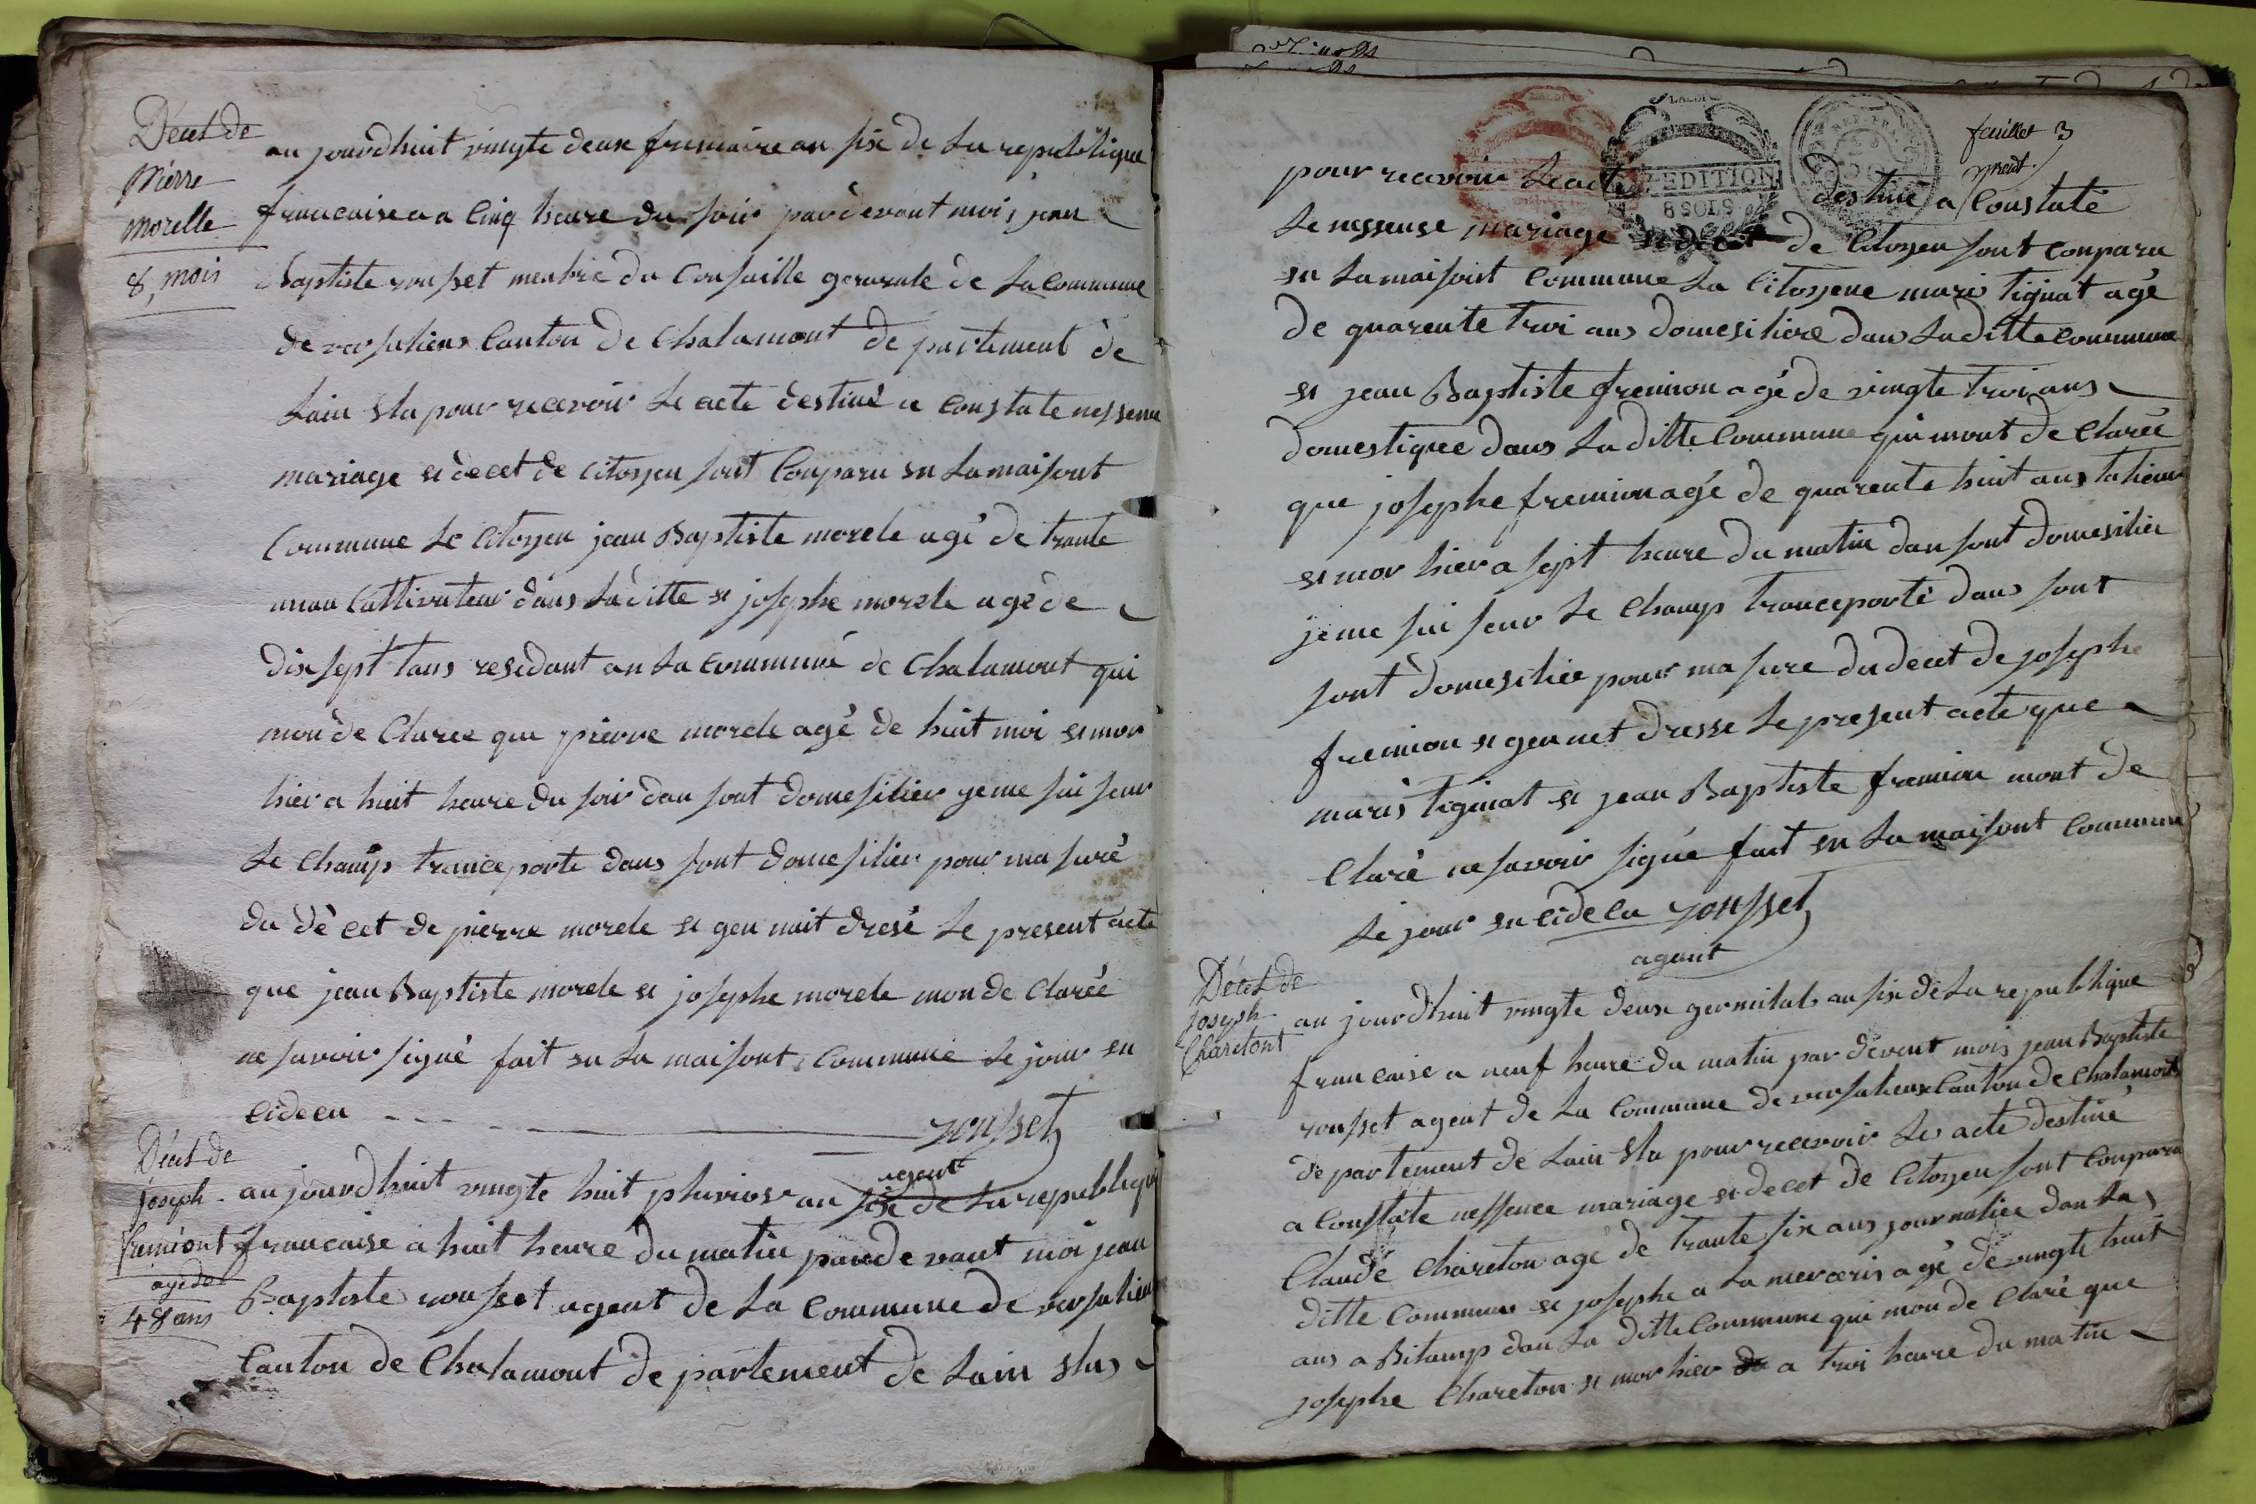 Décet de
Pierre
morelle
8, mois
au jourdhuit vingte deux frimaire an six de La republique
francaise a a Cinq heure du soir pardevant moi jean
Baptiste rousset menbre du Consaille generale de La Commune
de versalieux Canton de Chalamont de partement de
Lain Elu pour recevoir Le acte destiné a Constate nessence
mariage et decet de Citoyen sont Conparu en La maisont
Commune Le Citoyen jean Baptiste morele agé de trante
un an Cultivateur dans La ditte et josephe morele agé de
dix sept tans residant an La Commune de Chalamont qui
mon de Claree que pierre morele agé de huit moi et mor
hier a huit heure du soir dan sont domesilier ge me sui seur
Le Champ tranceporte dans sont domesilier pour ma suré
du décet de pierre morele et gen nait dresé Le present acte
que jean Baptiste morele et josephe morele mon de Clarée
ne savoir signé fait en La maisont Commune Le jour en
CideCu
rousset
agent
Décet de
joseph
fremiont
agé de
48 ans
au jourdhuit vingte huit pluviose an six de La republique
francaise a huit heure du matin parde vant moi jean
Baptiste rousset agent de La Commune de versalieu
Canton de Chalamont de partement de Lain Elus
feuillet 3
pour recevoir Le acte destiné a Constaté
Le nessense mariage et decet de Citoyen sont conparu
en La maisont Commune La Citoyene marie tignat agé
de quarente troi ans domesiliere dans La ditte Commune
et jean Baptiste fremion agé de vingte troi ans
domestiquee dans La ditte Commune qui mont de Clarée
que josephe fremion agé de quarente huit ans
et mor hier a sept heure du matin dan sont domesilier
je me sui seur Le Champ tranceporté dans sont
sont domesiliee pour ma sure du decet de josephe
fremion et gen net dresse Le present acte que
marie tignat et jean Baptiste fremion mont de
Claré ne savoir signé fait en La maisont Commune
Le jour en CideCu rousset
agant
Décet de
joseph
Charetont
au jourdhuit vingte deux germilal an six de La republique
francaise a neuf heure du matin par devent mois jean Baptiste
rousset agent de La Commune de versalieux Canton de Chalamont
de partement de Lain Elu pour recevoir Le acte destiné
a Constate nessence mariage et decet de Citoyen sont Conparu
Claude Chareton agé de trante six ans journaliee dan La
ditte Commune et josephe a La merceris agé de vingte huit
ans a Bitamp dan La ditte Commune qui mon de Claré que
josephe Chareton et mor hier a troi heure du matin
EDITION
8 SOLS